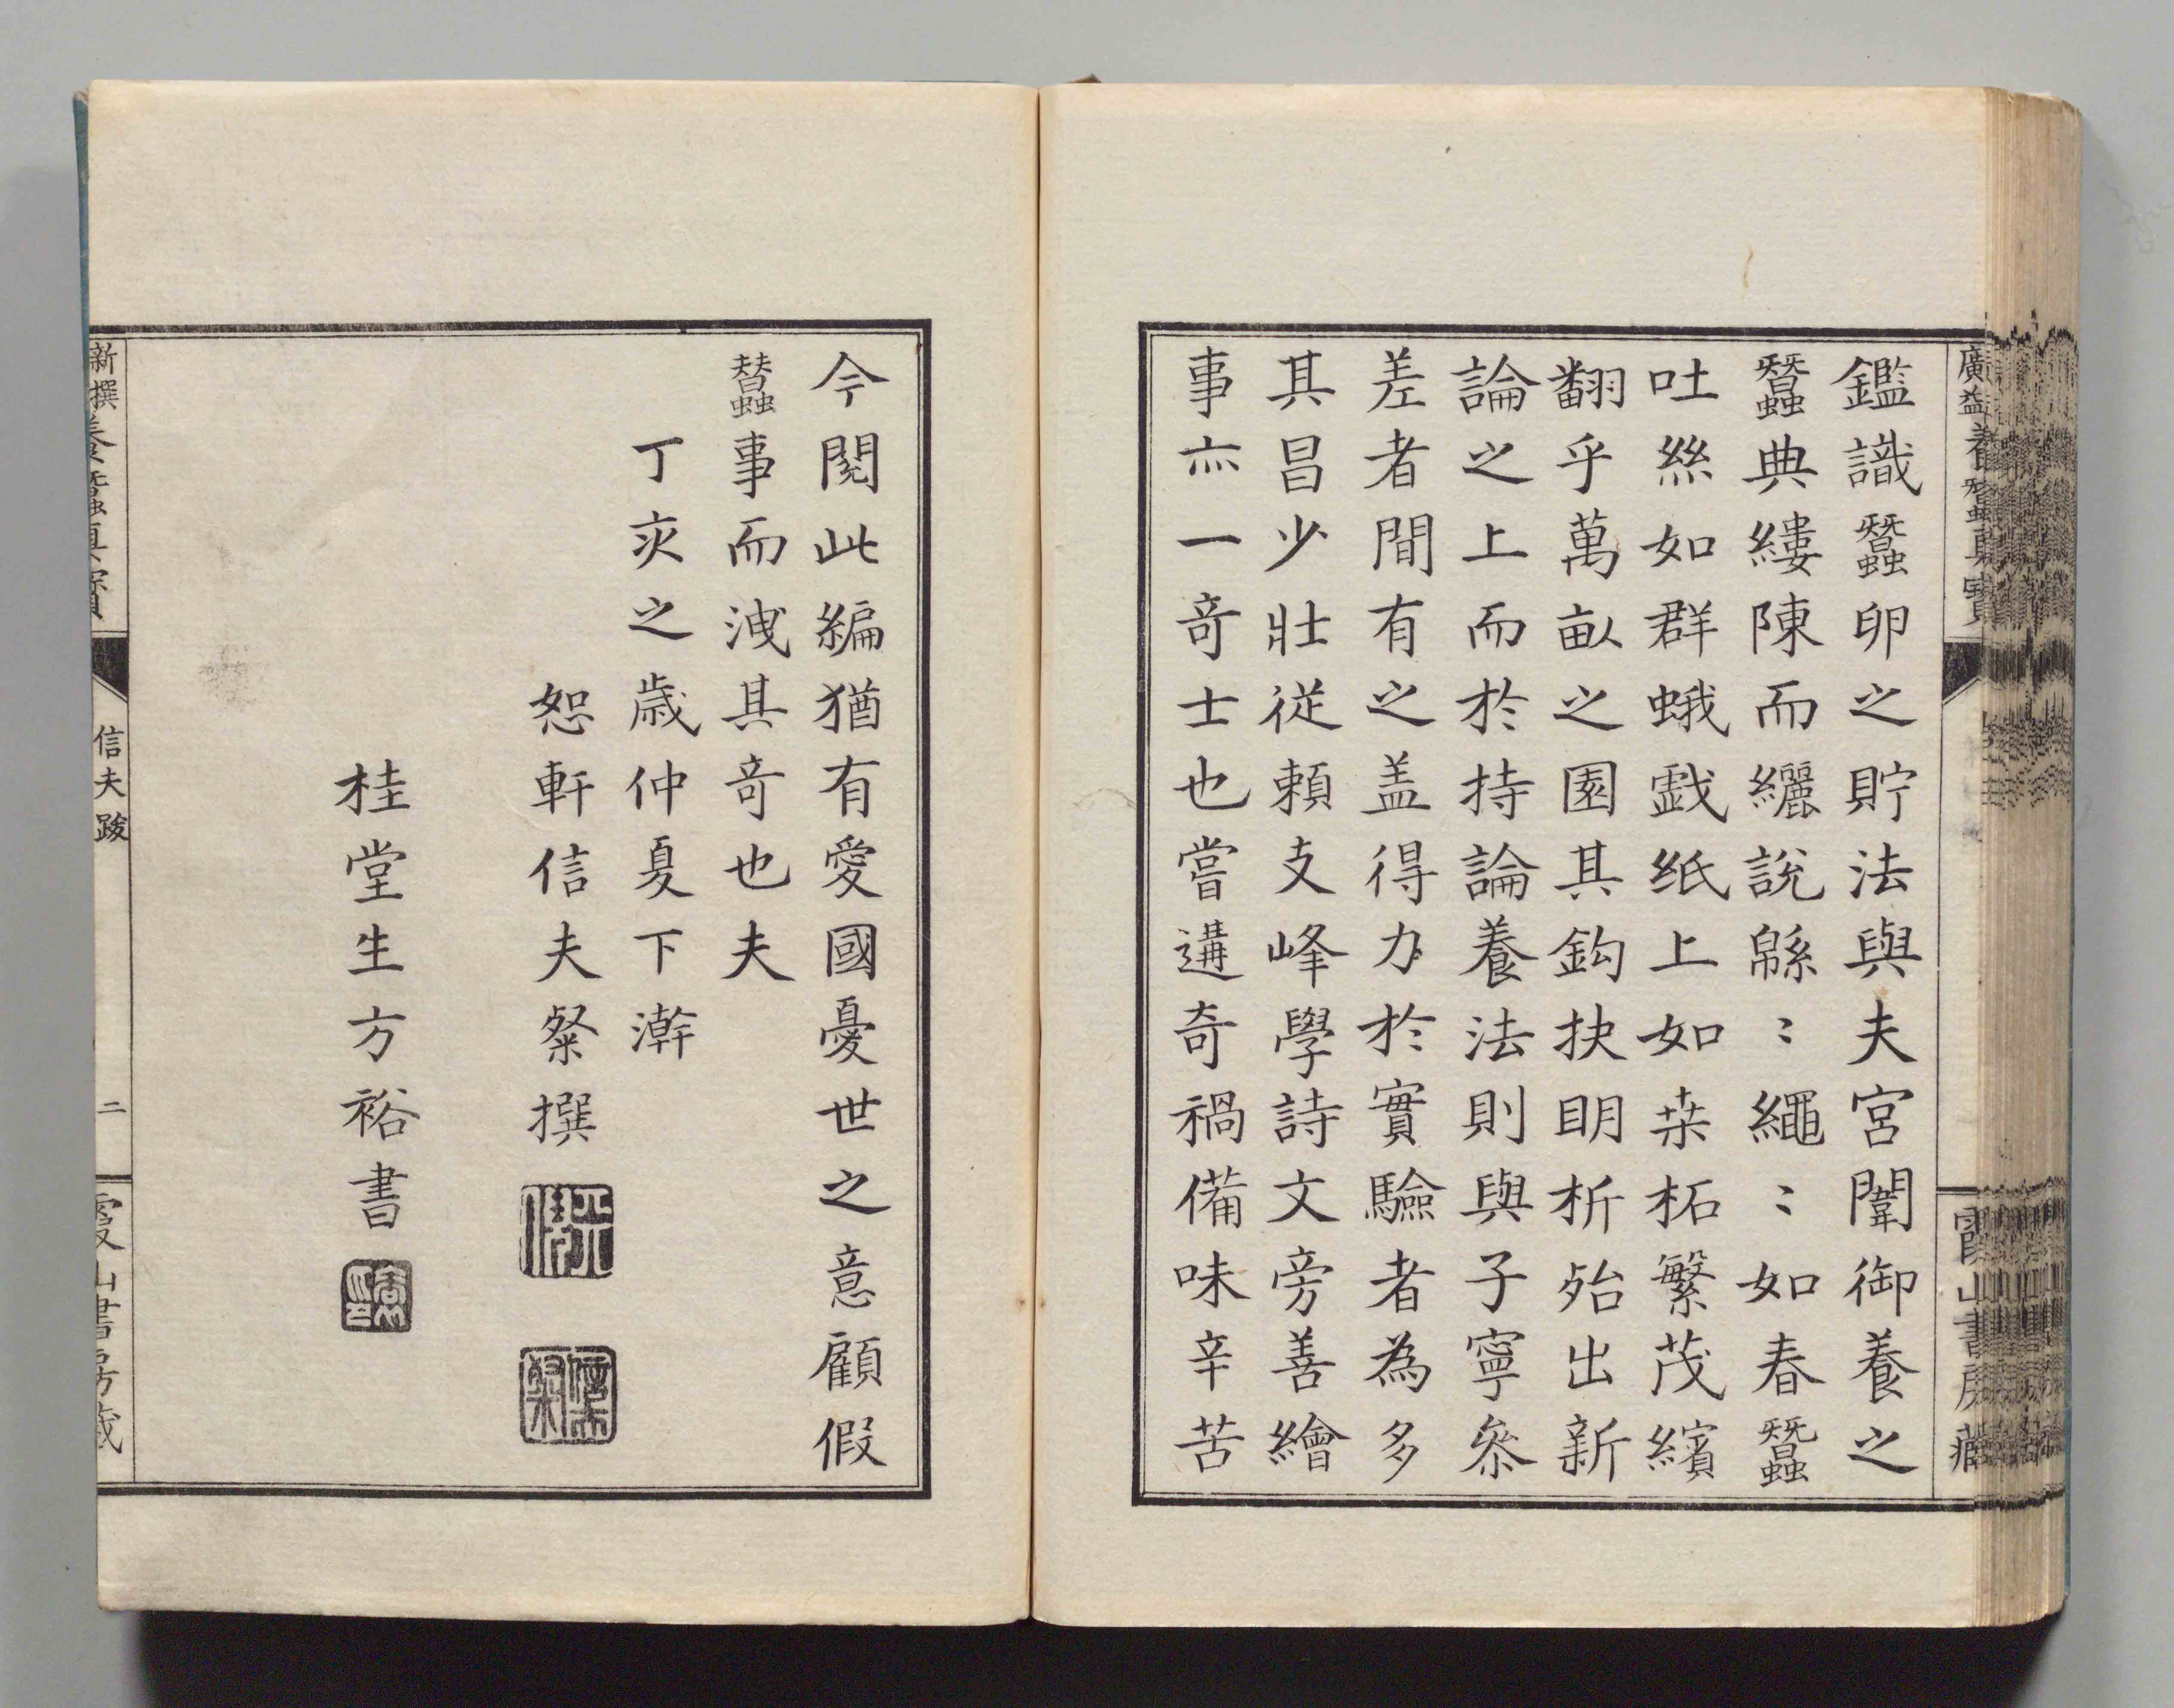 鑑識蠶卵之貯法與夫宮闈御養之
蠶典縷陳而纚說緜〻繩〻如春蠶
吐絲如群蛾戯紙上如桒柘繁茂繽
翻乎萬畝之園其鈎抉明析殆出新
論之上而於持論養法則與子寧叅
差者間有之盖得力於實驗者為多
其昌少壯從頼支峰學詩文旁善繪
事亦一奇士也嘗遘奇禍備味辛苦
今閱此編猶有愛國憂世之意顧假
蠶事而洩其奇也夫
丁亥之歳仲夏下澣
恕軒信夫粲撰
桂堂生方裕書
新撰養蠶真寶
信夫跋
二
霞山書房藏